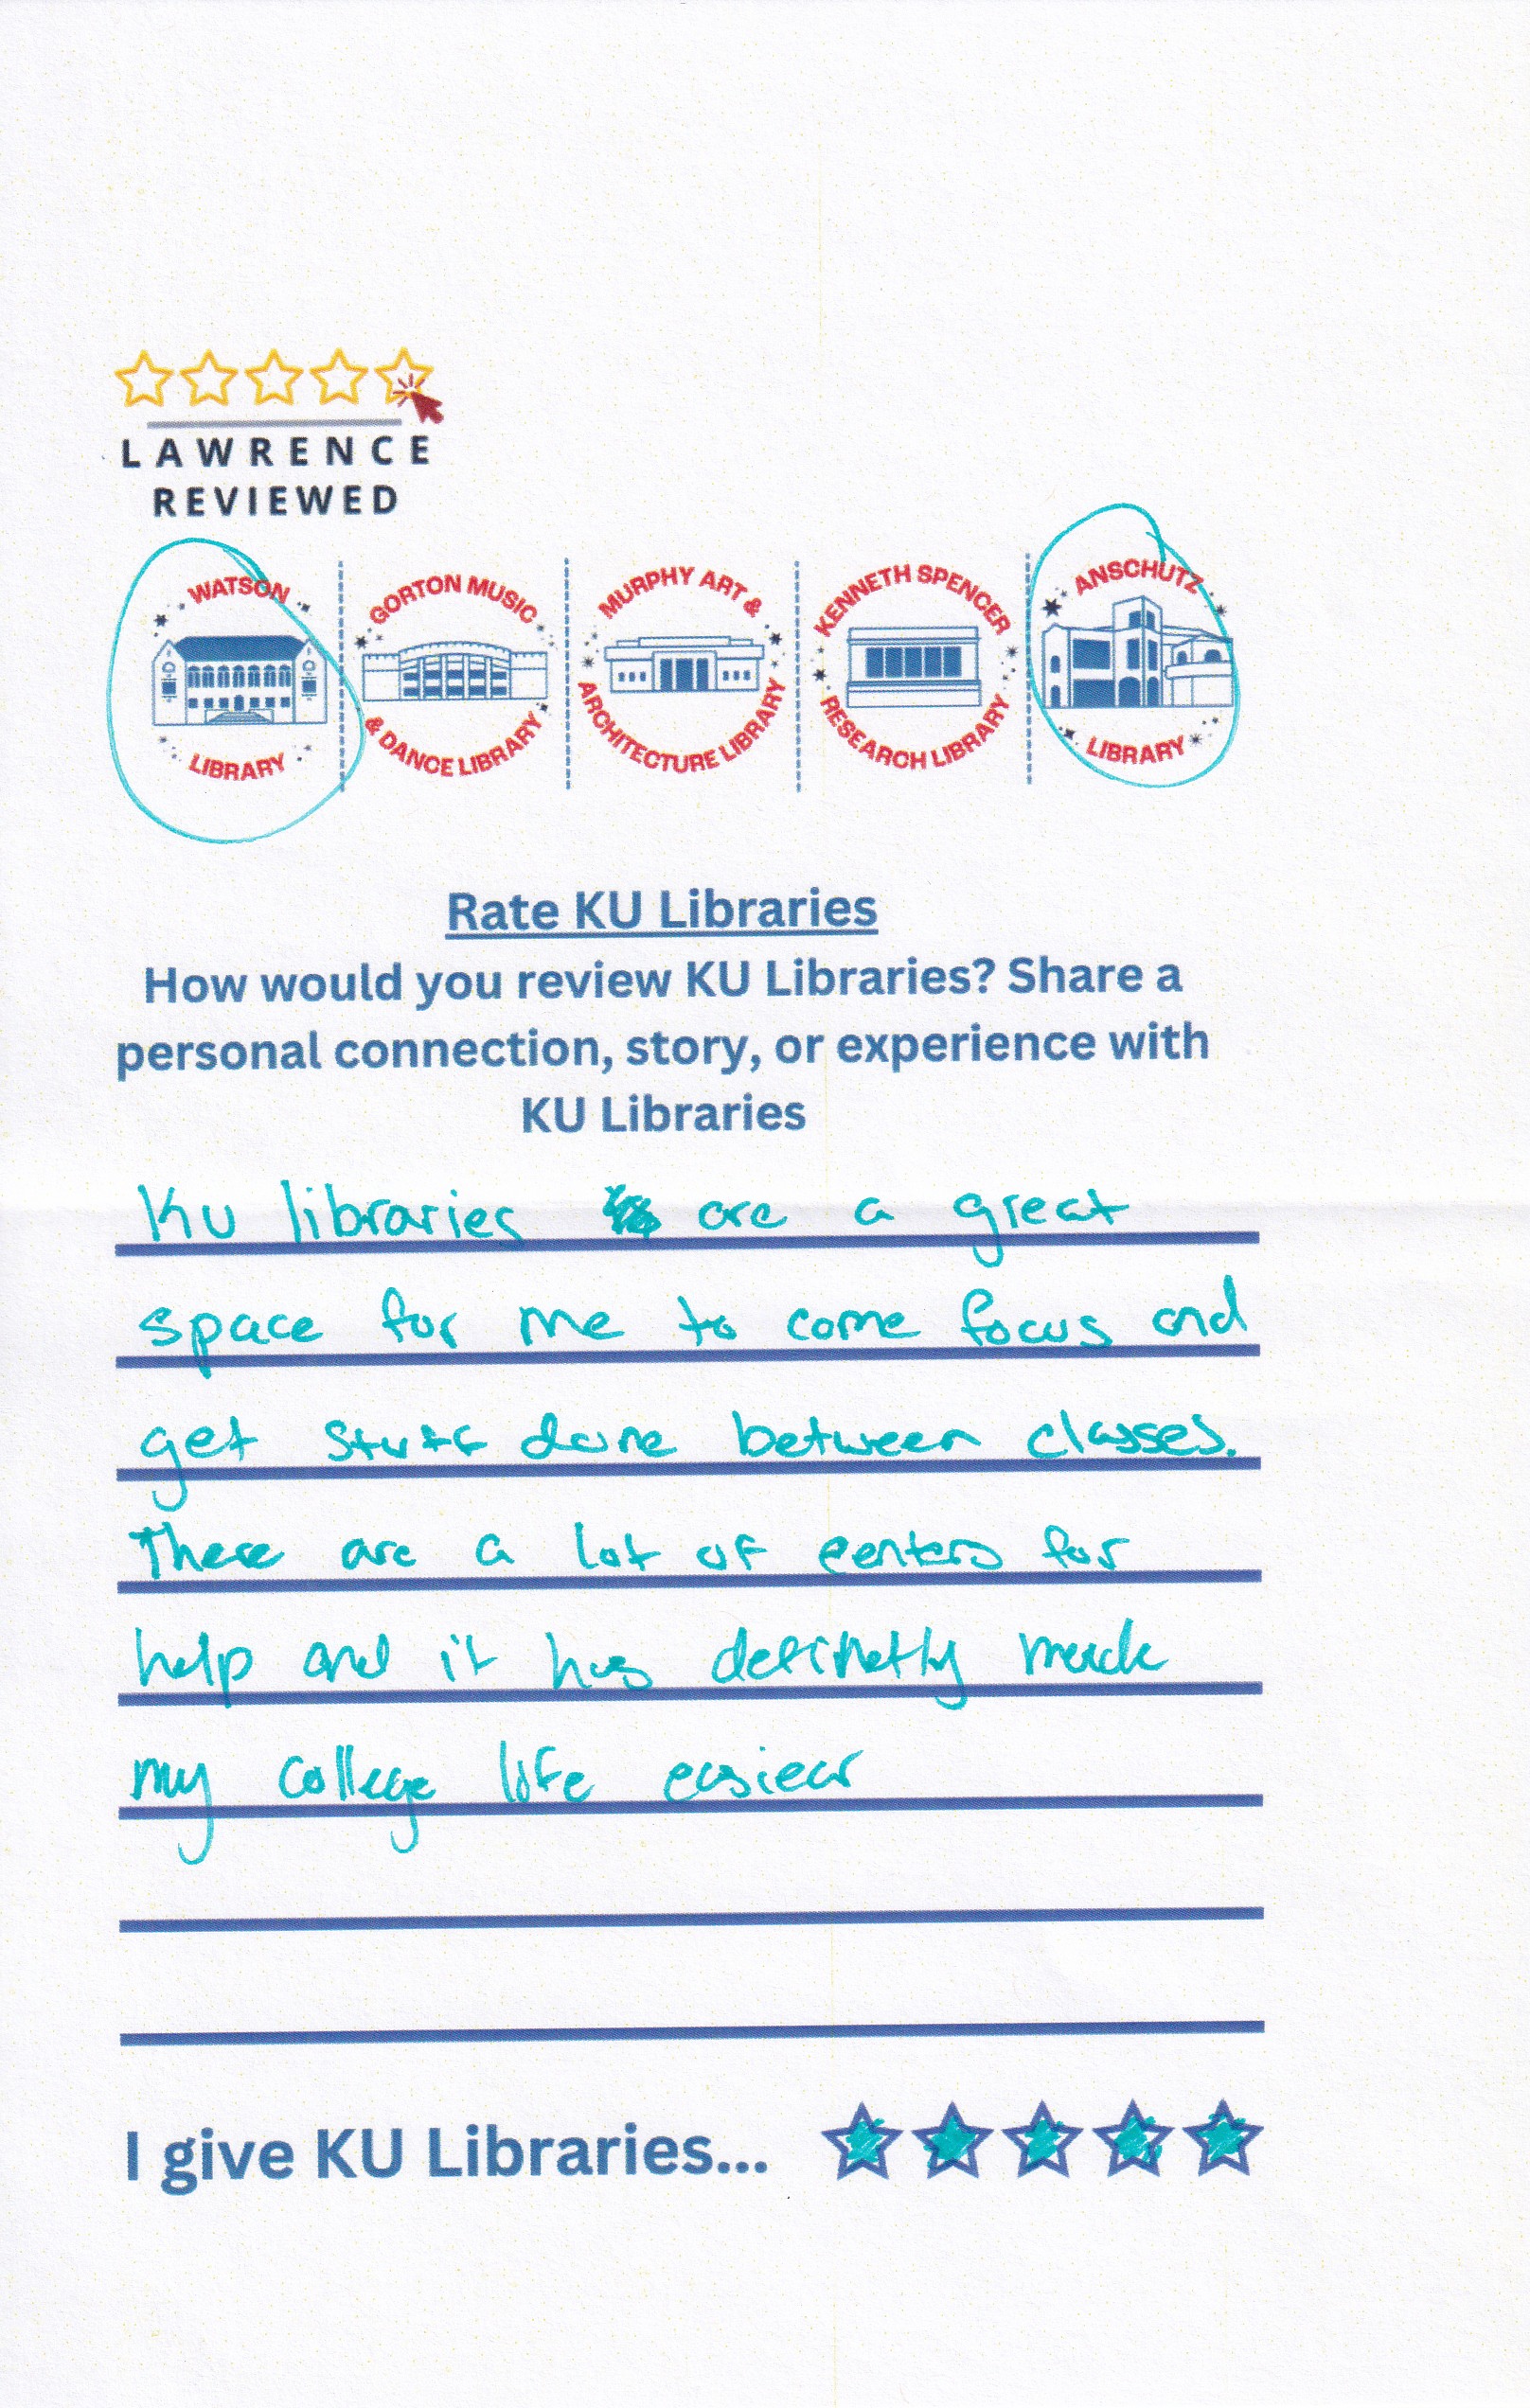 LAWRENCE
REVIEWED
WATSON LIBRARY
GORTON MUSIC & DANCE LIBRARY
MURPHY ART & ARCHITECTURE LIBRARY
KENNETH SPENCER RESEARCH LIBRARY
ANSCHUTZ LIBRARY
Rate KU Libraries
How would you review KU Libraries? Share a
personal connection, story, or experience with
KU Libraries
KU libraries are a great
space for me to come focus and
get stuff done between classes.
There are a lot of centers for
help and it has definetly made
my college life easier
I give KU Libraries...